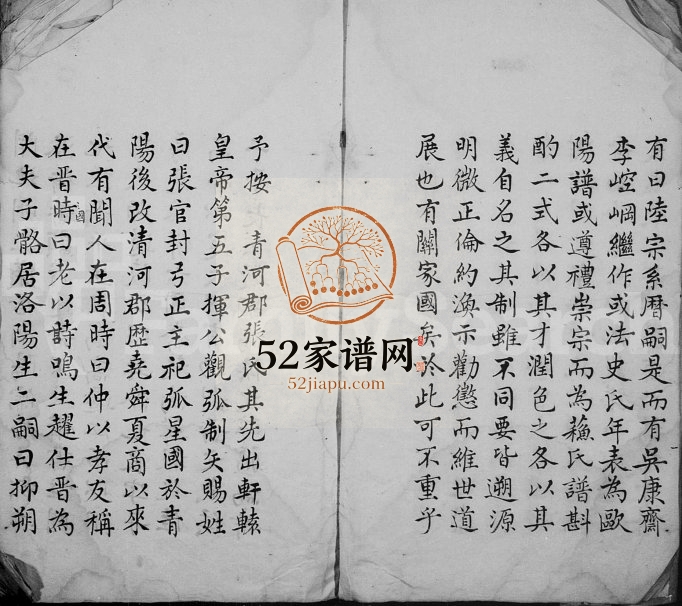 有曰陸宗系曆嗣是而有吳康齋
李崆峒繼作或法史氏年表為歐
陽譜或遵禮崇宗而為蘓氏譜斟
酌二式各以其才潤色之各以其
義自名之其制雖不同要皆遡源
明微正倫約渙示勸懲而維世道
展也有關家國矣於此可不重乎
予按 青河郡張氏其先出軒轅
皇帝第五子揮公觀弧制矢賜姓
曰張官封弓正主祀弧星國於青
陽後改清河郡歷堯舜夏商以來
代有聞人在周時曰仲以孝友稱
在晋時曰老以詩鳴生趯仕晋為
大夫子骼居洛陽生二嗣曰抑朔
52家谱网
52jiapu.com